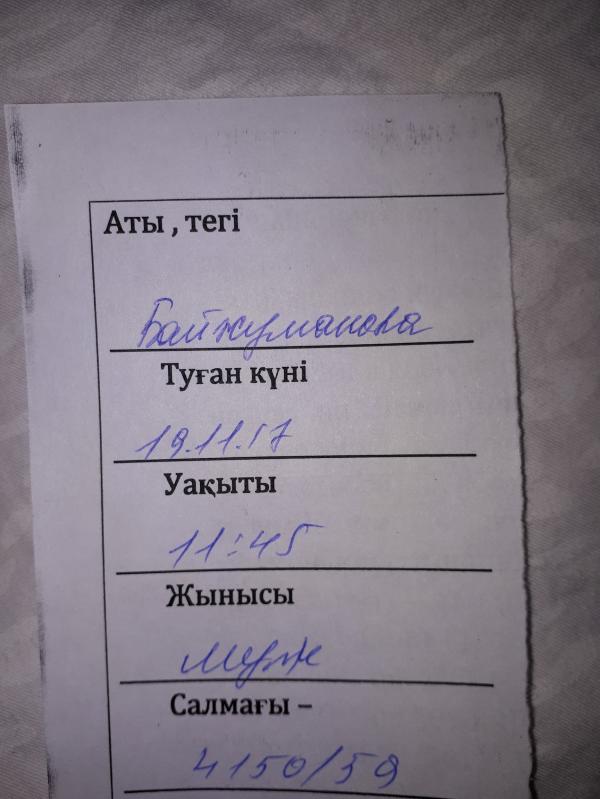 Аты , тегі
Байжуманова
Туған күні
19.11.17
Уақыты
11:45
Жынысы
Муж
Салмағы –
4150/59